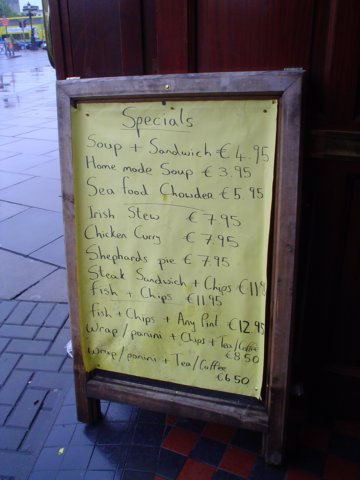 Specials
Soup + Sandwich €4.95
Home made Soup €3.95
Sea food Chowder €5.95
Irish Stew €7.95
Chicken Curry €7.95
Shephards pie €7.95
Steak Sandwich + Chips €11
fish + Chips €11.95
fish + Chips + Any Pint €12.95
Wrap/panini + Chips + Tea/Coffee
€8.50
Wrap/panini + Tea/Coffee
€6.50